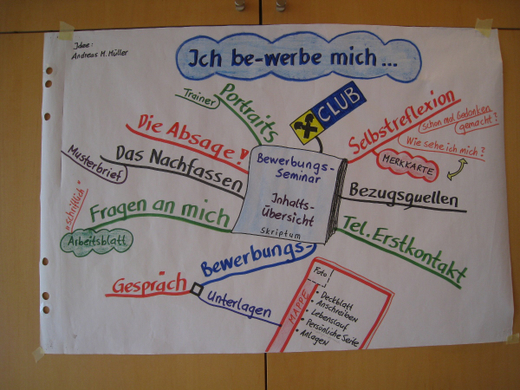 Idee:
Andreas M. Müller
Ich be-werbe mich...
CLUB
Portraits
Trainer
Die Absage?
Das Nachfassen
Musterbrief
Fragen an mich
schriftlich
Arbeitsblatt
Bewerbungs-
Seminar
Inhalts-
Übersicht
Skriptum
Selbstreflexion
schon mal Gedanken
gemacht?
Wie sehe ich mich?
MERKKARTE
Bezugsquellen
Tel. Erstkontakt
Bewerbungs-
Gespräch
Unterlagen
MAPPE
Foto
• Deckblatt
• Anschreiben
• Lebenslauf
• Persönliche Seite
• Anlagen